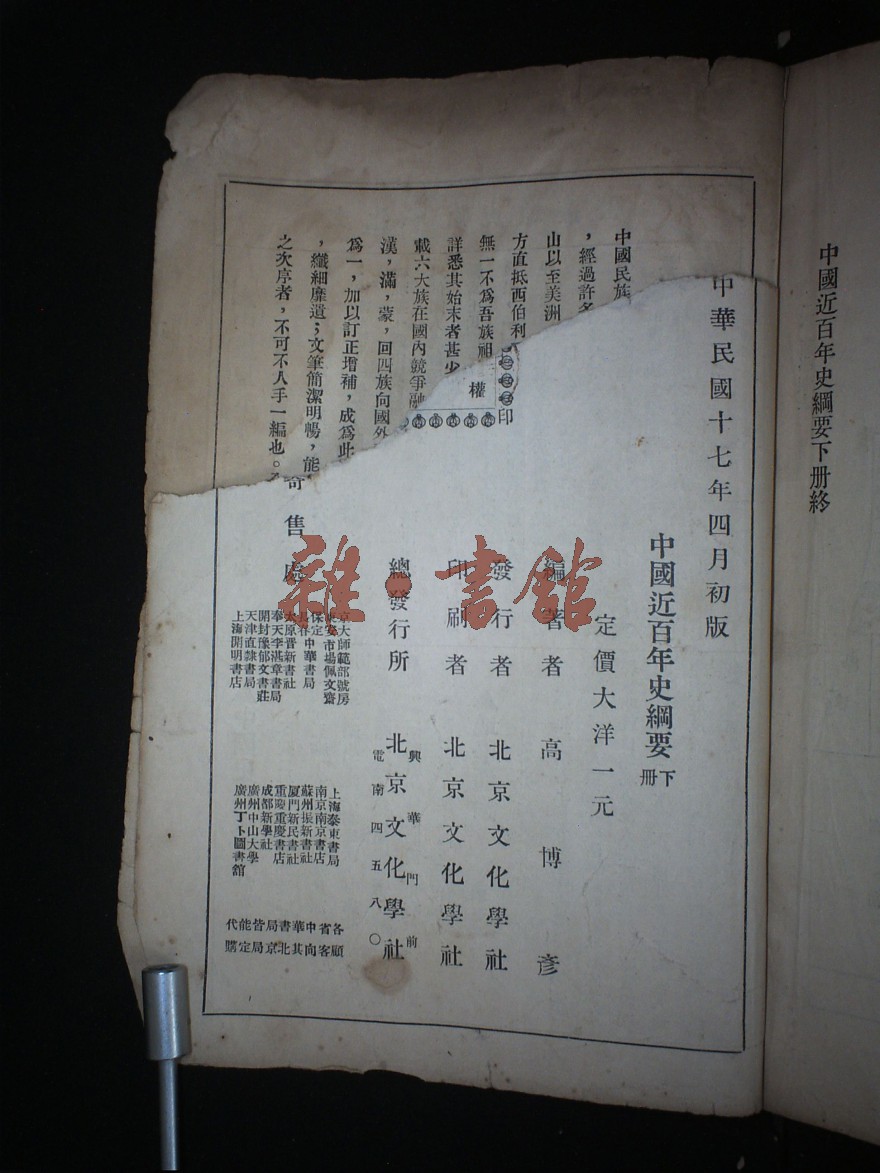 中國近百年史綱要下册終
中華民國十七年四月初版
中國近百年史綱要 下册
定價大洋一元
編著者 高博彥
發行者 北京文化學社
印刷者 北京文化學社
總發行所 北京文化學社
興華門前
電南四五八〇
權
印
中國民族
，經過許多
山以至美洲
方直抵西伯利
無一不爲吾族祖
詳悉其始末者甚少
載六大族在國內競爭融
漢，滿，蒙，回四族向國外
爲一，加以訂正增補，成爲此
，纖細靡遺；文筆簡潔明暢，能
之次序者，不可不人手一編也。
寄售處
京大師範部號房
東安市場佩文齋
保定中華書局
長春
太原晋新書社
奉天李湛章書局
開封豫郁文書莊
天津直隸書局
上海開明書店
上海泰東書局
南京南京書店
蘇州振新書社
厦門新民書社
重慶重慶書店
成都新學社
廣州中山大學
廣州丁卜圖書館
各省中華書局皆能代
顧客向其北京局定購
雜·書館